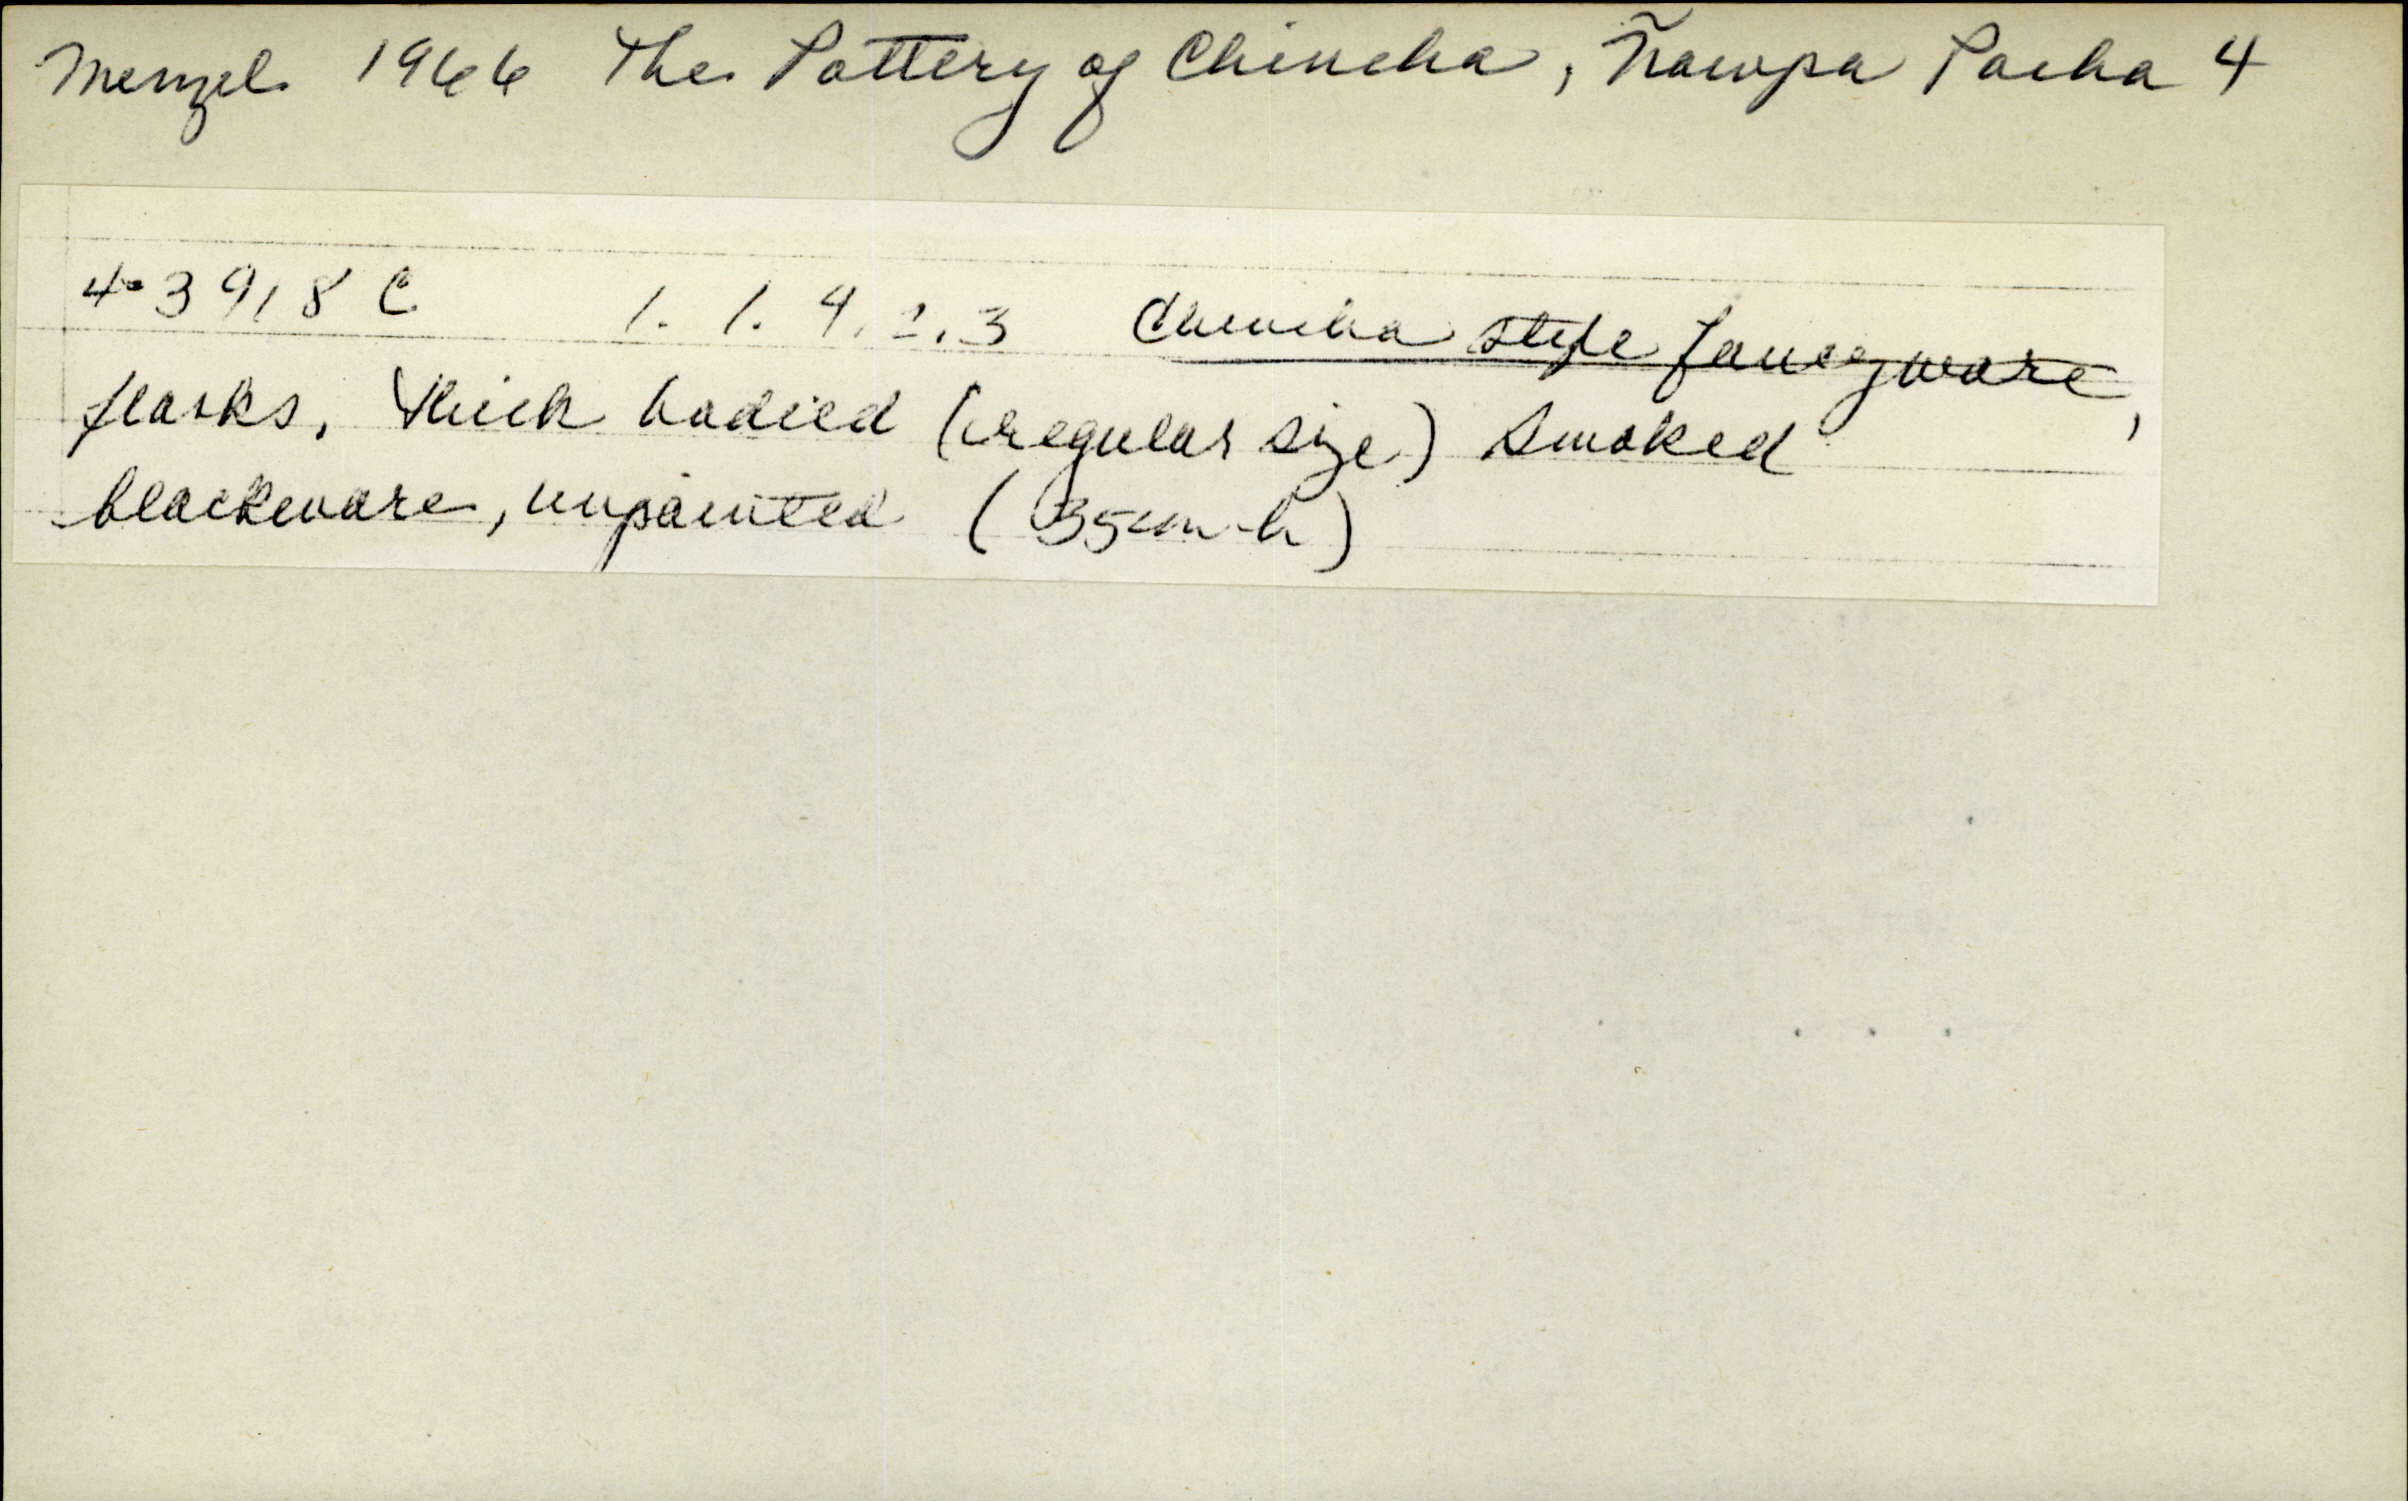 Menzel 1966 The Pottery of Chincha, Ñawpa Pacha 4
4-3918 C 1.1.4.2.3 Chincha style fancy ware,
flasks, thick bodied (regular size) smoked
blackware, unpainted (35cm-h)